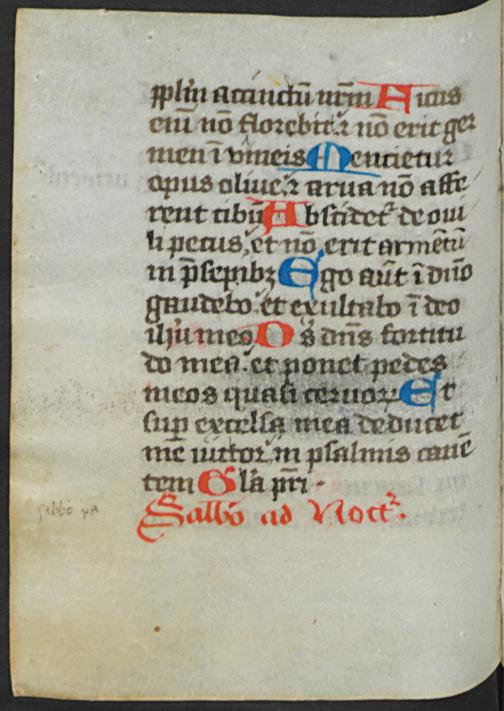 pplm accinctū nr̄m Ficus
eni nō florebit: ⁊ nō erit ger
men ī vineis Mencietur
opus oliue: ⁊ arua nō affe
rent cibū Abscidet᷑ de oui
li pecus: et nō erit armētū
in p̄sepibꝫ Ego aūt ī dn̄o
gaudebo: et exultabo ī deo
ih̄u meo D s dn̄s fortitu
do mea: et ponet pedes
meos quasi ceruoꝝ Et
sup excelsa mea deducet
me uictor: in psalmis canē
tem Gl̄a pr̄i
Sabb̄o ad Noct᷑.